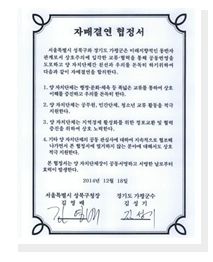 자매결연 협정서
서울특별시 성북구와 경기도 가평군은 미래지향적인 동반자
관계로서 상호호혜에 입각한 교류·협력을 통해 공동번영을
도모하고 양 자치단체간 친선과 우의를 돈독히 하기위하여
다음과 같이 자매결연을 합의한다.
1. 양 자치단체는 행정·문화·체육 등 폭넓은 교류를 통하여 상호
이해를 증진하고 우의를 돈독히 한다.
2. 양 자치단체는 공무원, 민간단체, 청소년 교류 활동을 적극
지원한다.
3. 양 자치단체는 지역경제 활성화를 위한 정보교환 및 협력
증진을 위하여 상호 노력한다.
4. 기타 양 자치단체 공동 관심사에 대하여 지속적으로 협의해
나가면서 본 협정서에 명기하지 않는 분야에 대해서도 상호
적극 지원한다.
본 협정서는 양 자치단체장이 공동서명하고 서명한 날로부터
효력이 발생한다.
2014년 12월 18일
서울특별시 성북구청장 경기도 가평군수
김영배 김성기
김영배 김성기